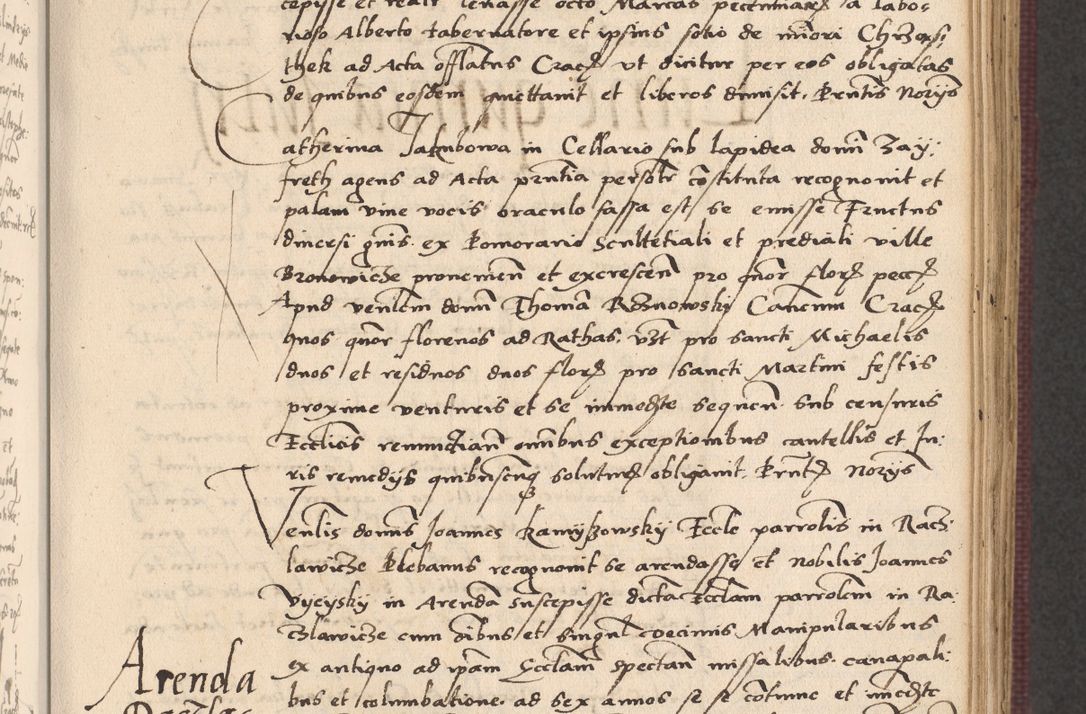 cepisse et realr levasse octo Marcas pecuniar a labo:
rioso Alberto tabernatore et ipsius socio de minori Chrzosz
thek ad Acta offlatus Crac ut dicitur per eos obligatas
de quibus eosdem quittavit et liberos dimisit. Prntis Norys
Catherina Jakubowa in Cellario sub lapidea domi Zay:
freth agens ad Acta prntia personlr constituta recognovit et
palam vive vocis oraculo fassa est se emisse Fructus
diversi gnis ex Pomorario Scultetiali et prediali ville
Bronowicze provenien et excrescen pro quor flor pecc
Apud venlem domi Thomam Roznowski Cancum Crac
quos quor florenos ad Rathas, vzt pro sancti Michaelis
duos et residuos duos flor pro Sancti Martini festis
proxime venturis et se immedte sequen. Sub censuris
Ecclicis renunctian omibus exceptionibus cautellis et Ju:
ris remedys quibuscunq soluturu obligavit. Prnt Norys
Venlis domus Joannes Kamyszowsky Eccle parrolis in Racz
lawicze Plebanus recognovit se arendasse et Nobilis Joannes
Vyeysky in Arenda suscepisse dicta Ecclam parrolem in Ra:
czlawicze cum oibus et singul coecimis Manipularibus
ex antiquo ad ipam Ecclam spectan missalibus. canapali:
bus et columbatione. ad sex annos se se cotinue et imedte
Arenda